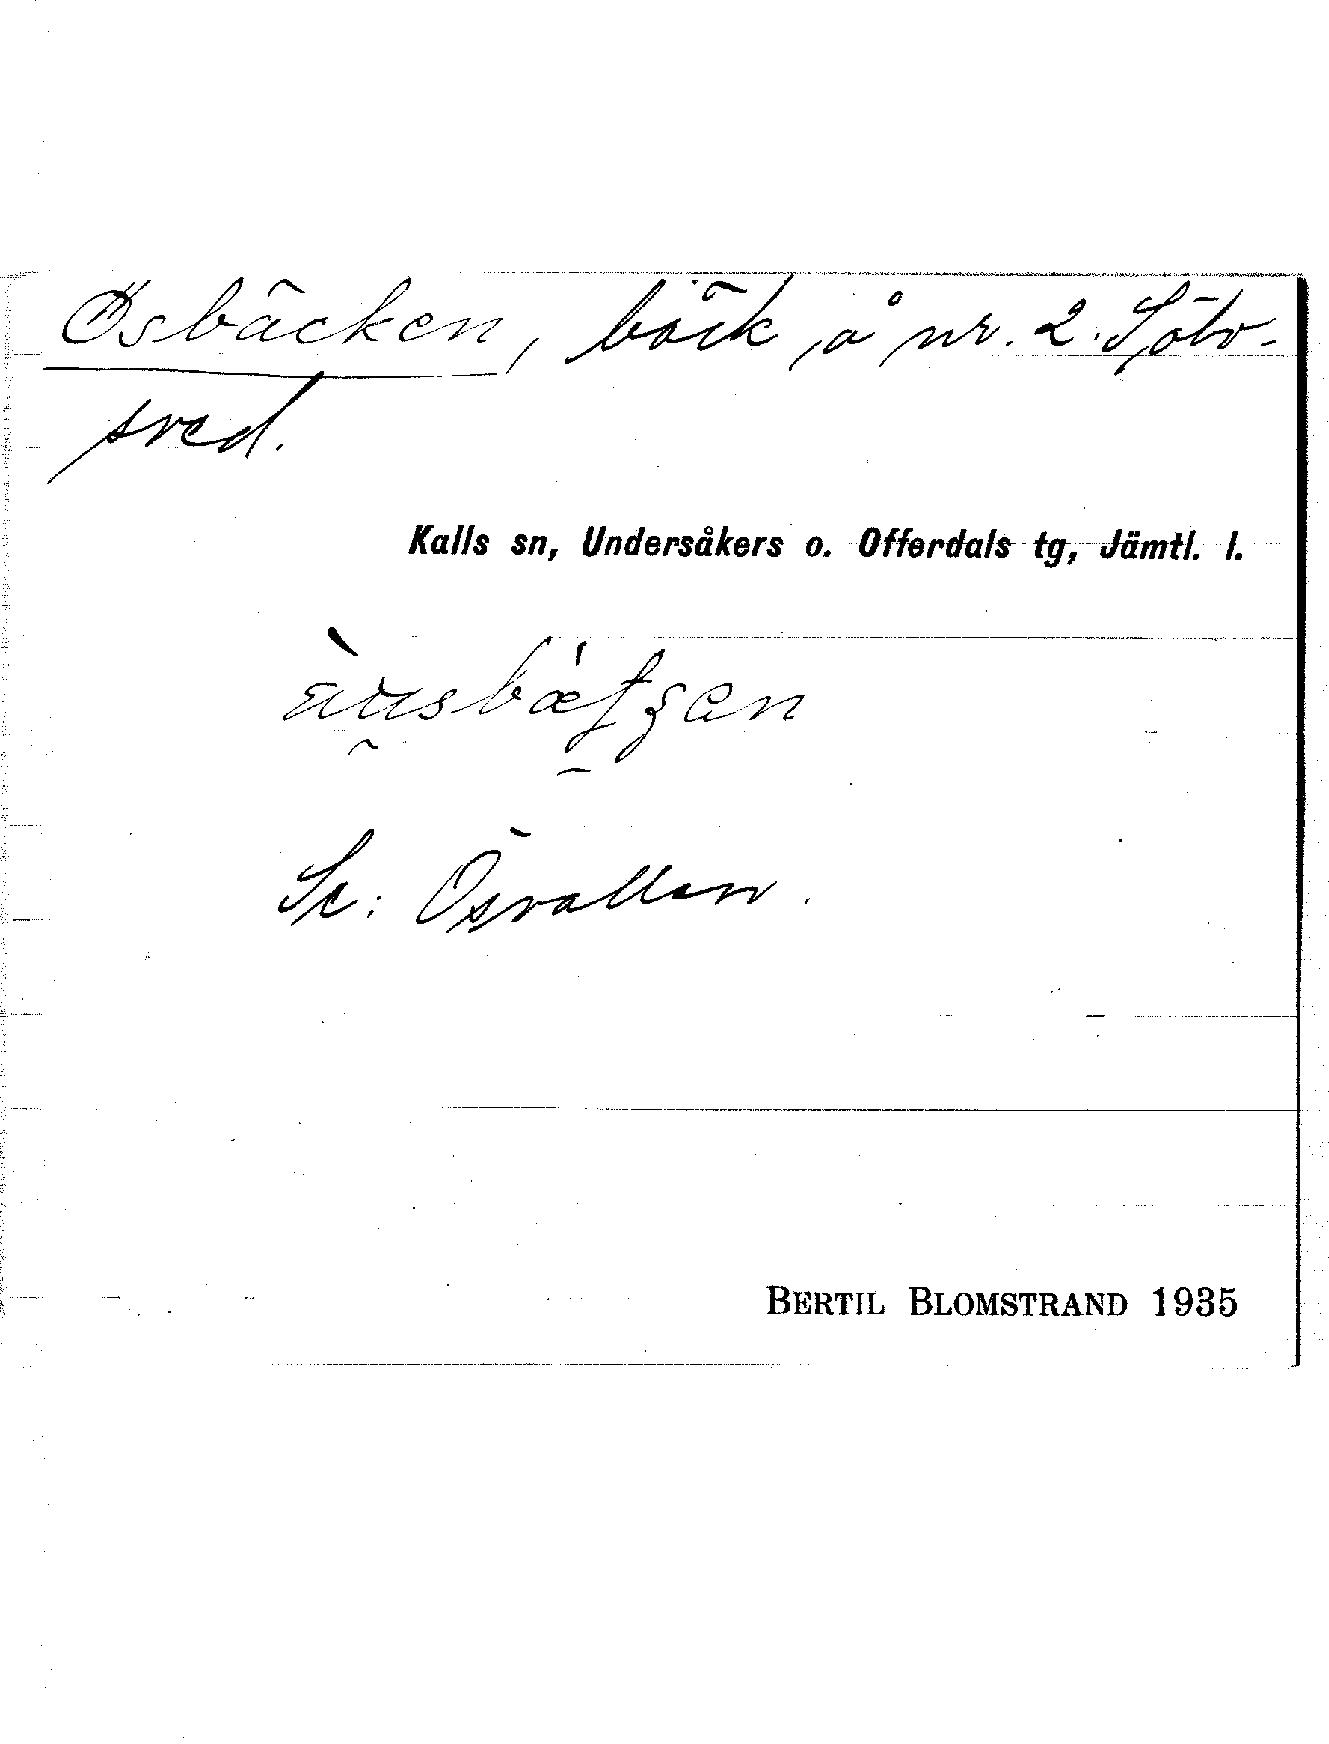 Ösbäcken, bäck å nr. 2. Sölv-
sved.
Kalls sn, Undersåkers o. Offerdals tg, Jämtl. l.
Se: Ösvallen.
BERTIL BLOMSTRAND 1935